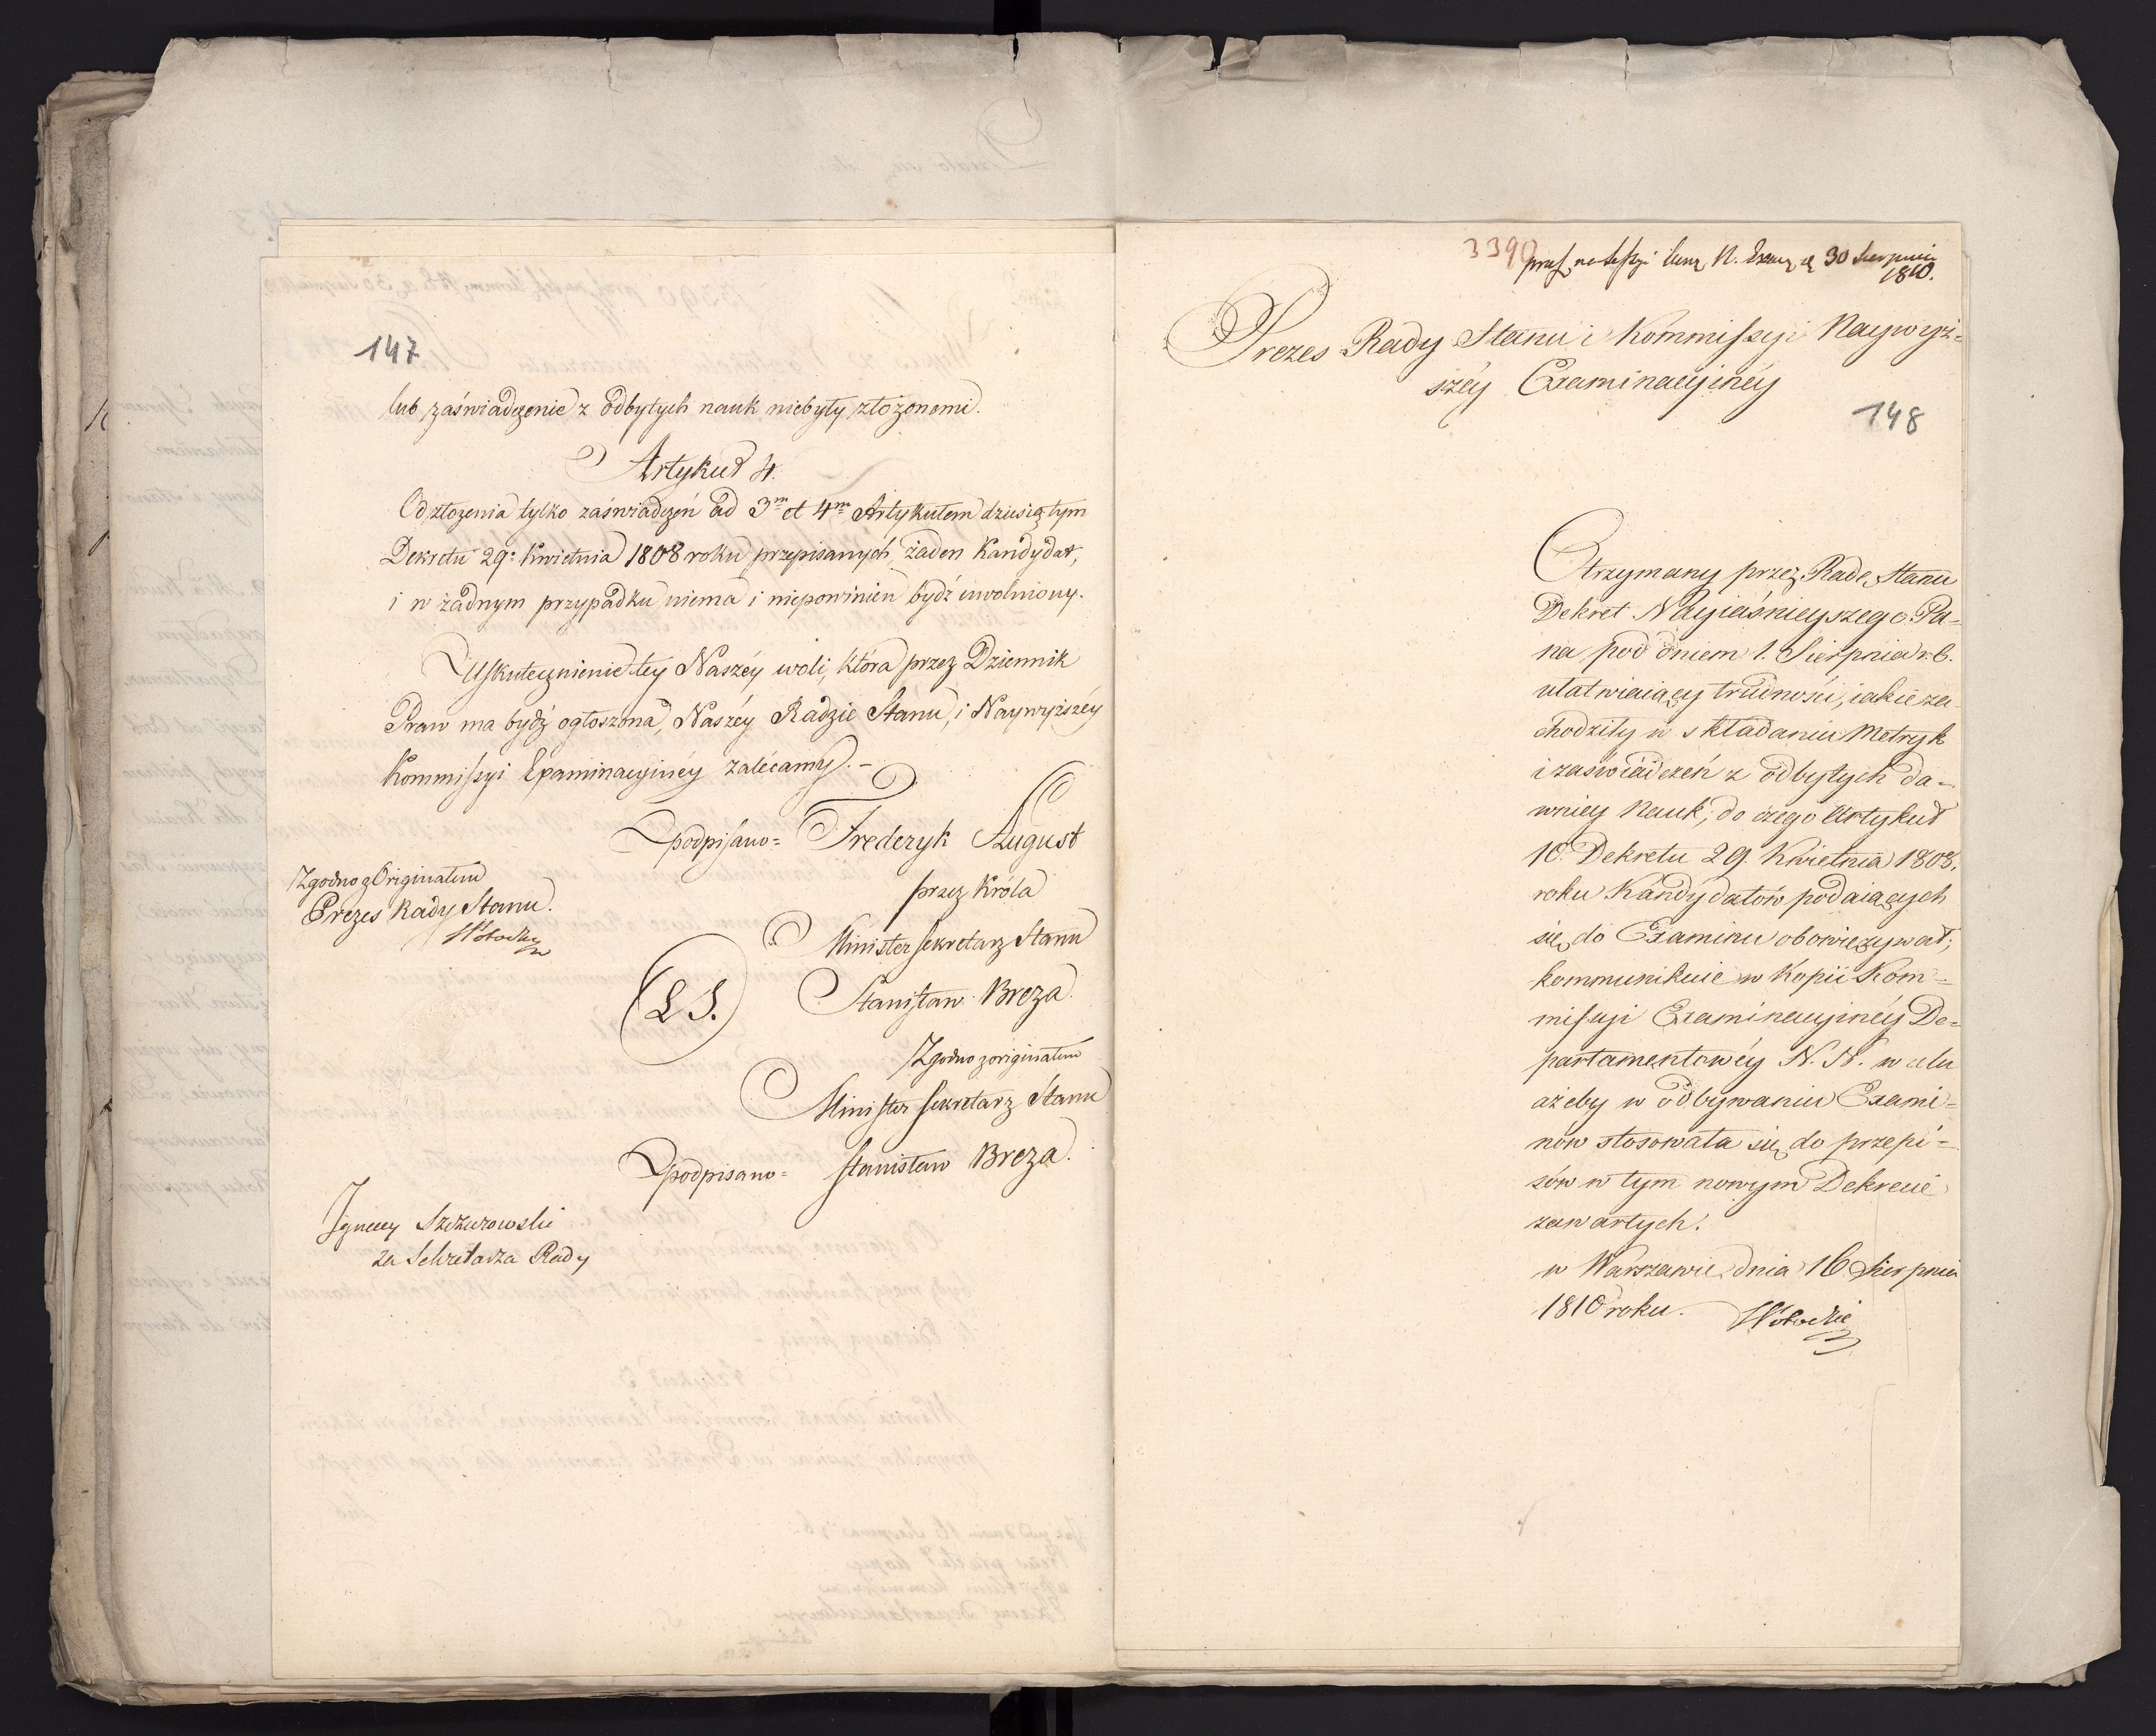 147
lub zaświadczenie z odbytych nauk niebyły złożonemi.
Artykuł 4.
Od złożenia tylko zaświadczeń ad 3m et 4m Artykułem dziesiątym
Dekretu 29: Kwietnia 1808 roku przepisanych, żaden Kandydat,
i w żadnym przypadku niema i niepowinien bydź uwolniony.
Uskutecznienie tey Naszéy woli, która przez Dziennik
Praw ma bydź ogłoszona, Naszéy Radzie Stanu, i Naywyższéy
Kommissyi Examinacyinéy zalécamy. -
podpisano= Frederyk August
przez Króla
Minister Sekretarz Stanu
(LS.) Stanisław Breza.
Zgodno z originałem
Minister Sekretarz Stanu
podpisano= Stanisław Breza.
Zgodno z Originałem
Prezes Rady Stanu.
Ignacy Szczurowski
za Sekretarza Rady
3390
30 Sierpnia
1810.
Prezes Rady Stanu i Kommissyi Naywyż=
széy Examinacyinéy
148
Otrzymany przez Radę Stanu
Dekret Nayiaśnieyszego Pa=
na pod dniem 1. Sierpnia r. b.
ułatwiaiący trudności, iakie za-
chodziły w składaniu Metryk
i zaświadczeń z odbytych da=
wniey Nauk, do czego Artykuł
10. Dekretu 29. Kwietnia 1808.
roku Kandydatów podaiących
się do Examinu obowiązywał;
kommunikuie w Kopii Kom=
missyi Examinacyinéy De=
partamentowéy N. N. w celu
ażeby w odbywaniu Exami=
nów stosowała się do przepi=
sów w tym nowym Dekrecie
zawartych.
w Warszawie dnia 16 Sierpnia
1810 roku.